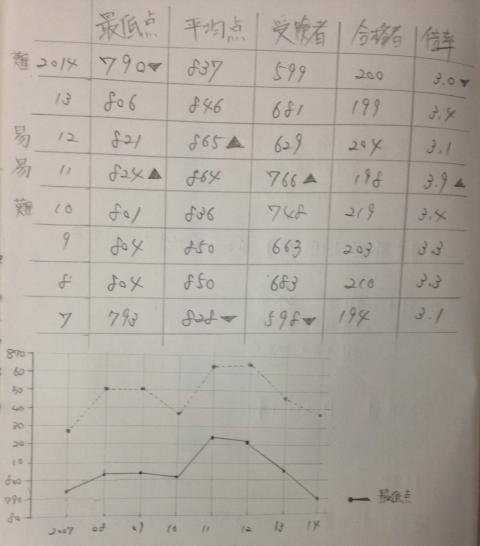 最低点 平均点 受験者 合格者 倍率
難 2014 790▼ 837 599 200 3.0▼
13 806 846 681 199 3.4
易 12 821 865▲ 629 204 3.1
易 11 824▲ 864 766▲ 198 3.9▲
難 10 801 836 748 219 3.4
9 804 850 663 203 3.3
8 804 850 683 210 3.3
7 793 828▼ 598▼ 194 3.1
870
60
50
40
30
20
10
800
790
80
2007 08 09 10 11 12 13 14
最低点